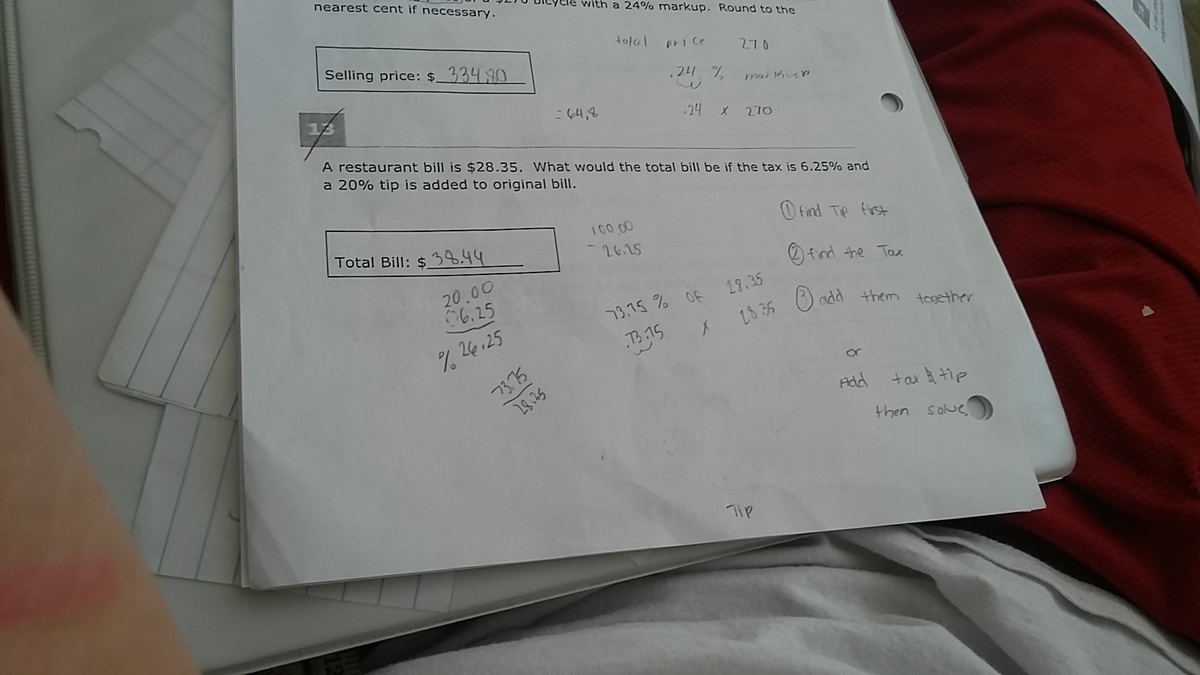 bicycle with a 24% markup. Round to the
nearest cent if necessary.
total price 270
Selling price: $ 334.80
.24 % markup
=64.8 .24 x 270
13
A restaurant bill is $28.35. What would the total bill be if the tax is 6.25% and
a 20% tip is added to original bill.
① find Tip first
100.00
- 26.25
Total Bill: $ 38.44
② find the Tax
20.00
6.25
% 26.25
73.75 % OF 28.35
.73.75 x 28.35
③ add them together
73.75
28.35
or
Add tax & tip
then solve
Tip